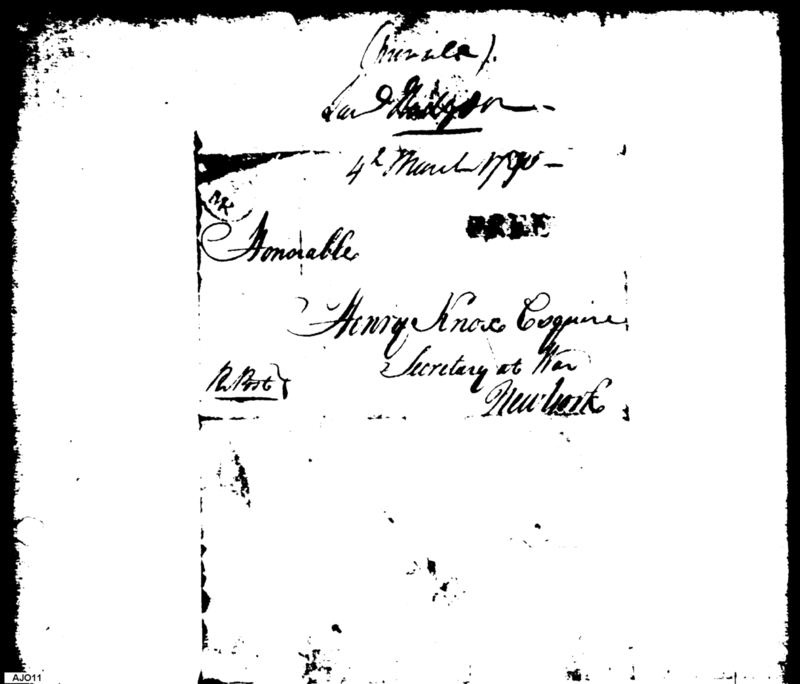 (private).
Saml Hodgdon —
4th March 1790 —
FREE
Honorable
Henry Knox Esquire
Secretary at War
New York
Pr. Post
AJO11